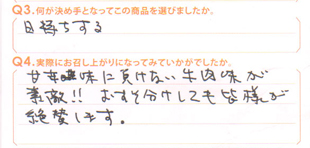 Q3.何が決め手となってこの商品を選びましたか。
日持ちする
Q4.実際にお召し上がりになってみていかがでしたか。
甘辛味に負けない牛肉味が
素敵!! おすそ分けしても皆様が
絶賛します。